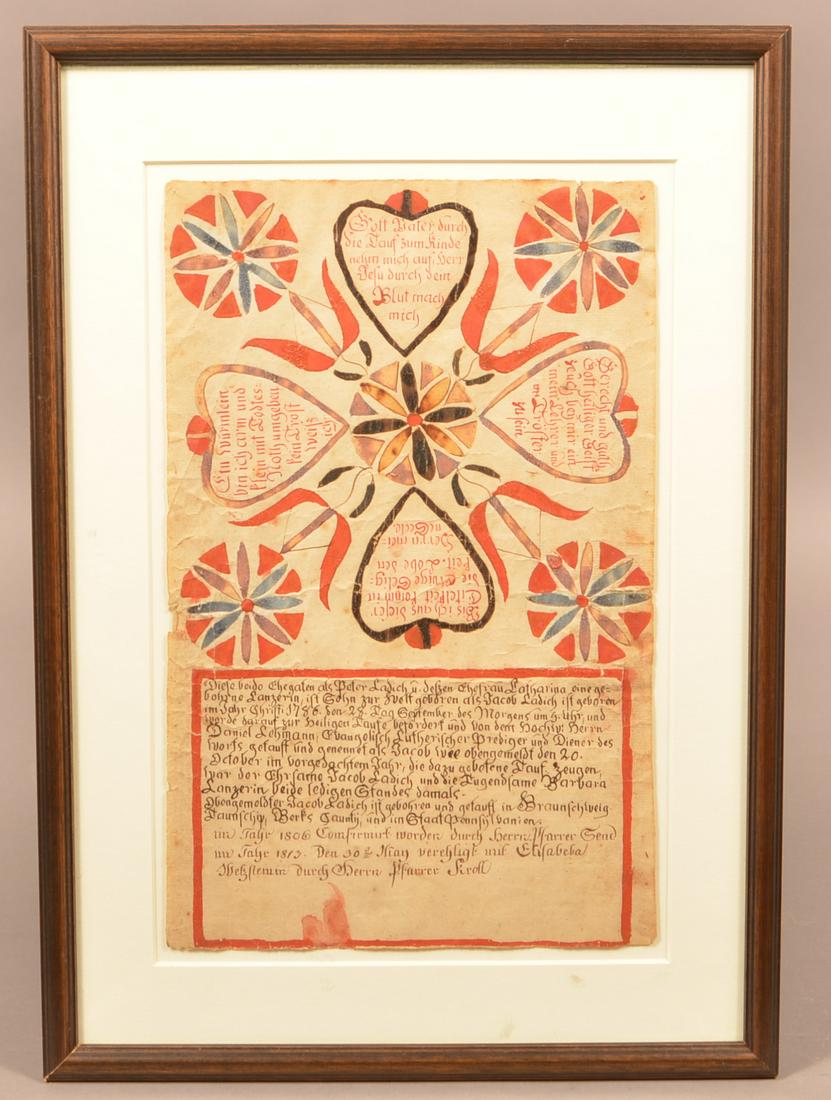 Gott Vater durch
die Tauf zum Kinde
nehm mich auf: Herr
Jesu durch dein
Blut mach
mich
Gerecht und guth.
Gott heiliger Geist
sey mir ein
mein Lehrer und
Tröster
Bis ich aus dieser
Eitelkeit komm in
die Ewige Selig-
keit. Lobe den
Herrn mei-
ne Seele.
Ein würmlein
bin ich arm und
klein mit Todtes-
Noth umgeben
kein Trost
weiß
ich
Diese beide Ehegaten als Peter Ladich u. deßen Ehefrau Catharina eine ge-
bohrne Lanzerin, ist Sohn zur Welt geboren als Jacob Ladich ist geboren
im Jahr Christi 1786. den 28. Tag September des Morgens um Uhr, und
worde darauf zur Heiligen Taufe befördert und von dem Hochw: Herrn
Daniel Lehmann, Evangelisch Lutherischer Prediger und Diener des
Worts getauft und genennet als Jacob wee obengemeldt den 20.
October im vorgedachtem Jahr, die dazu gebotene Tauf Zeugen,
war der Ehrsame Jacob Ladich und die Tugendsame Barbara
Lanzerin beide ledigen Standes damals.
Obengemeldter Jacob Ladich ist gebohren und getauft in Braunschweig
Taunschip, Berks Caunty, und im Staat Pennsylvanien.
im Jahr 1806 Comfirmirt worden durch Herrn Pfarrer
im Jahr 1813. Den 30 May verehligt mit Elisabeha
Wetzstenin durch Herrn Pfarrer Kroll